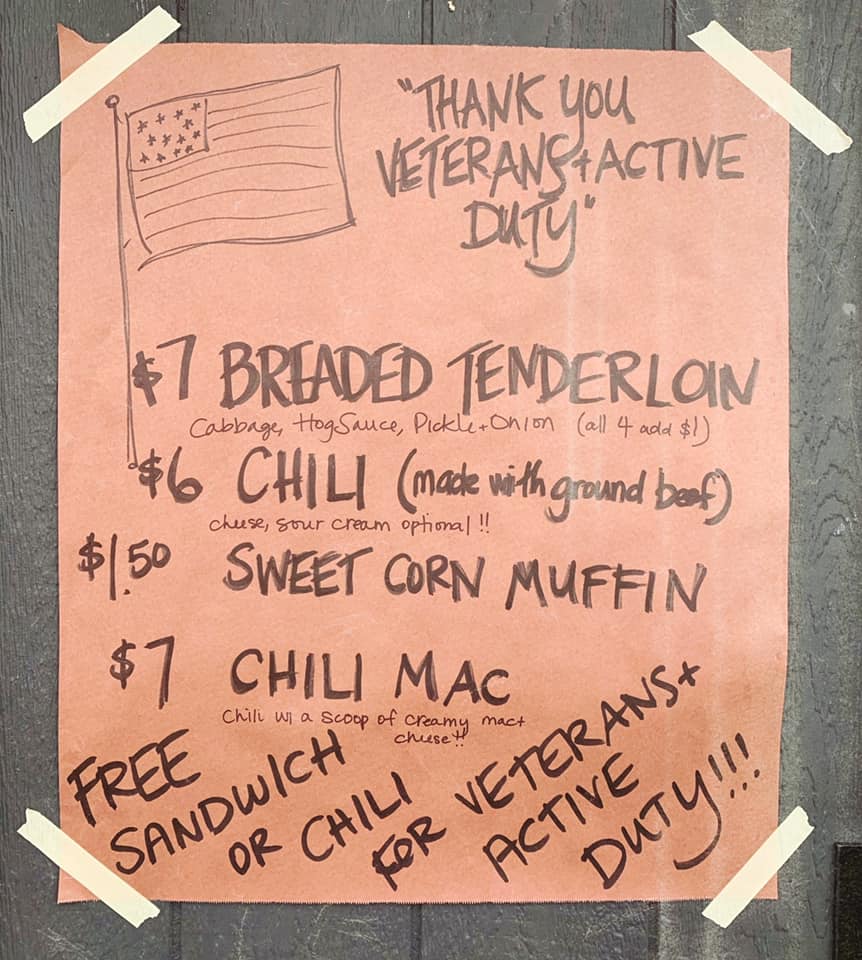 "THANK YOU
VETERANS + ACTIVE
DUTY"
$7 BREADED TENDERLOIN
Cabbage, HogSauce, Pickle + Onion (all 4 add $1)
$6 CHILI (made with ground beef)
cheese, sour cream optional!!
$1.50 SWEET CORN MUFFIN
$7 CHILI MAC
Chili w/ a scoop of creamy mac +
cheese!!
FREE
SANDWICH
OR CHILI
FOR VETERANS +
ACTIVE
DUTY!!!